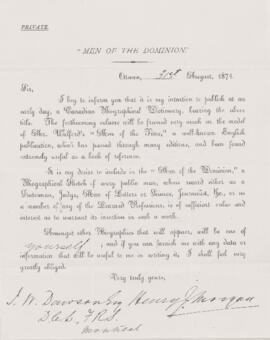 PRIVATE.
"MEN OF THE DOMINION."
Ottawa, 31st August, 1871.
Sir,
I beg to inform you that it is my intention to publish at
an early day, a Canadian Biographical Dictionary, bearing the above
title. The forthcoming volume will be framed very much on the model
of Mr. Walford's "Men of the Time," a well-known English
publication, which has passed through many editions, and been found
extremely useful as a book of reference.
It is my desire to include in the "Men of the Dominion," a
Biographical Sketch of every public man, whose record either as a
Statesman, Judge, Man of Letters or Science, Journalist, &c., or as
a member of any of the Learned Professions, is of sufficient value and
interest as to warrant its insertion in such a work.
Amongst other Biographies that will appear, will be one of
yourself ; and if you can furnish me with any data or
information that will be useful to me in writing it, I shall feel very
greatly obliged.
Very truly yours,
J. W. Dawson Esq Henry J. Morgan
F.R.S.
Montreal